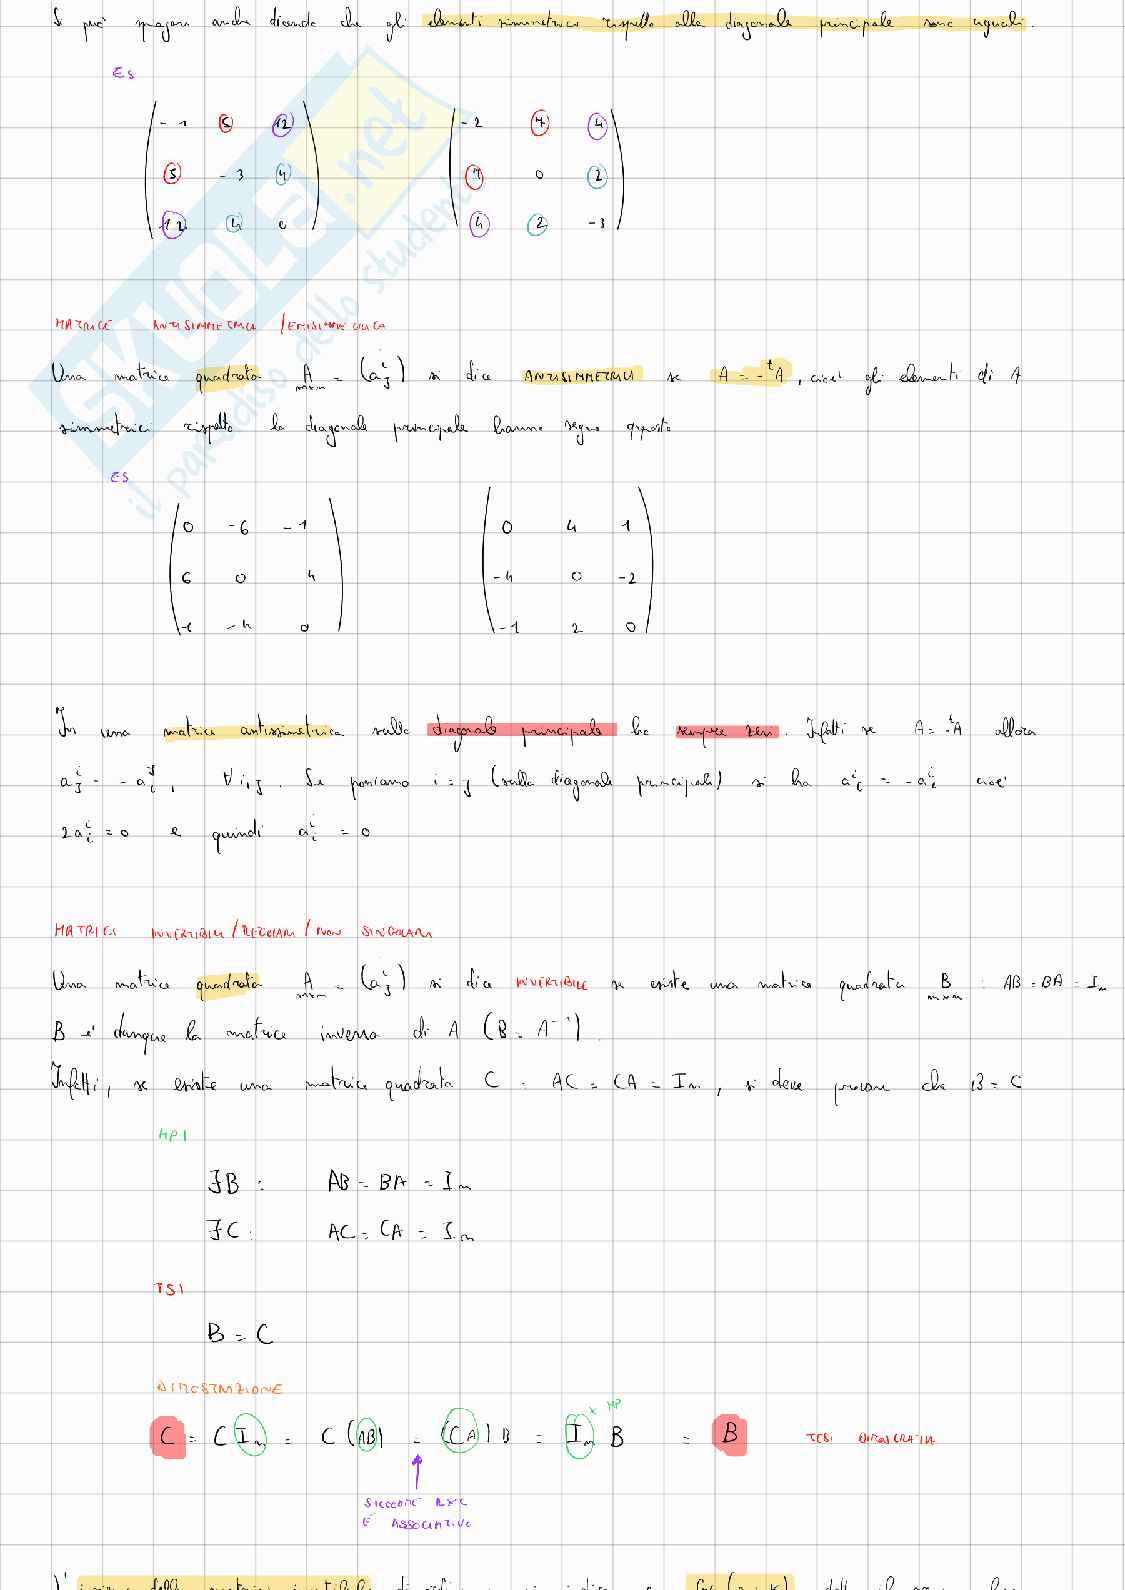 Si può spiegare anche dicendo che gli elementi simmetrici rispetto alla diagonale principale sono uguali.
ES
-1 5 12
5 -3 4
12 4 0
-2 7 4
7 0 2
4 2 -3
MATRICE ANTISIMMETRICA / EMISIMMETRICA
Una matrice quadrata A n×n = (a^i_j) si dice ANTISIMMETRICA se A = -ᵗA, cioè gli elementi di A
simmetrici rispetto la diagonale principale hanno segno opposto
ES
0 -6 -1
6 0 4
-4 0
0 4 1
-4 0 -2
-1 2 0
In una matrice antissimetrica sulla diagonale principale ha sempre zeri. Infatti se A = -ᵗA allora
a^i_j = -a^j_i, ∀ i,j. Se poniamo i = j (sulla diagonale principale) si ha a^i_i = -a^i_i cioè
2a^i_i = 0 e quindi a^i_i = 0
MATRICI INVERTIBILI / REGOLARI / NON SINGOLARI
Una matrice quadrata A n×n = (a^i_j) si dice INVERTIBILE se esiste una matrice quadrata B n×n : AB = BA = I_n
B è dunque la matrice inversa di A (B = A^-1).
Infatti, se esiste una matrice quadrata C : AC = CA = I_n, si deve provare che B = C
HPI
∃B : AB = BA = I_n
∃C : AC = CA = I_n
TSI
B = C
DIMOSTRAZIONE
x HP
C = C I_n = C (AB) = (CA) B = I_n B = B TESI DIMOSTRATA
SICCOME RXC
È ASSOCIATIVO
SKUOLA.net
il paradiso dello studente